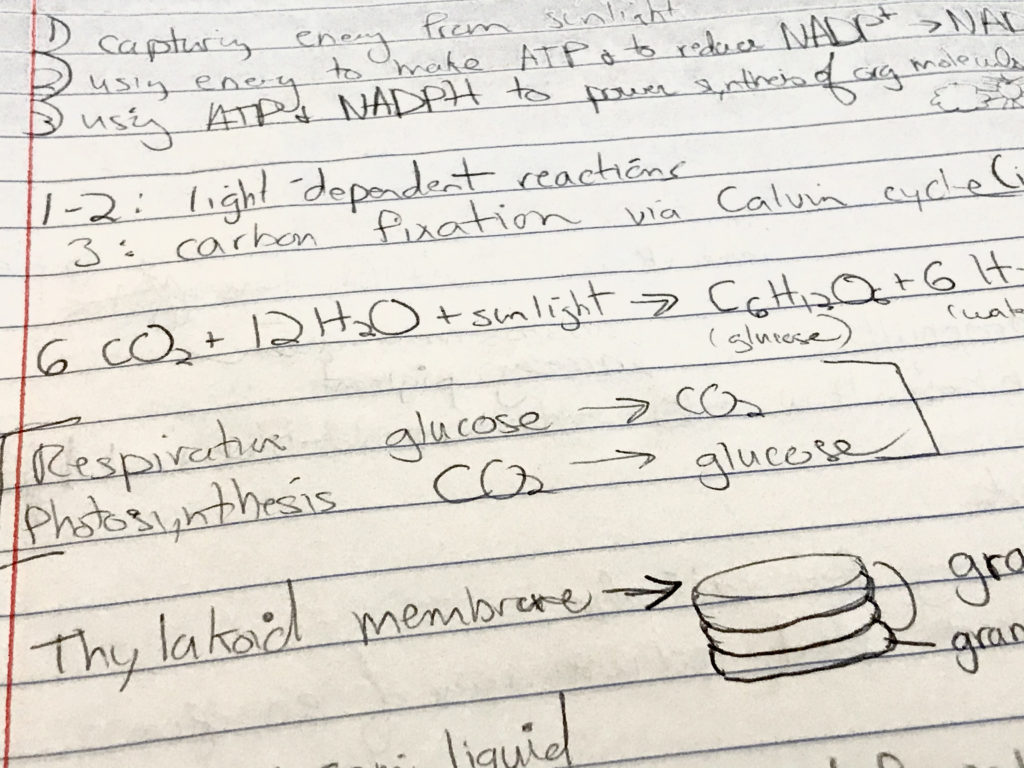 1) capturing energy from sunlight
2) using energy to make ATP & to reduce NADP+ > NAD
3) using ATP & NADPH to power synthesis of org molecules
1-2: light-dependent reactions
3: carbon fixation via Calvin cycle (i
6 CO2 + 12 H2O + sunlight → C6H12O6 + 6 H
(glucose) (wat
Respiration glucose → CO2
Photosynthesis CO2 → glucose
Thylakoid membrane → gra
gran
liquid